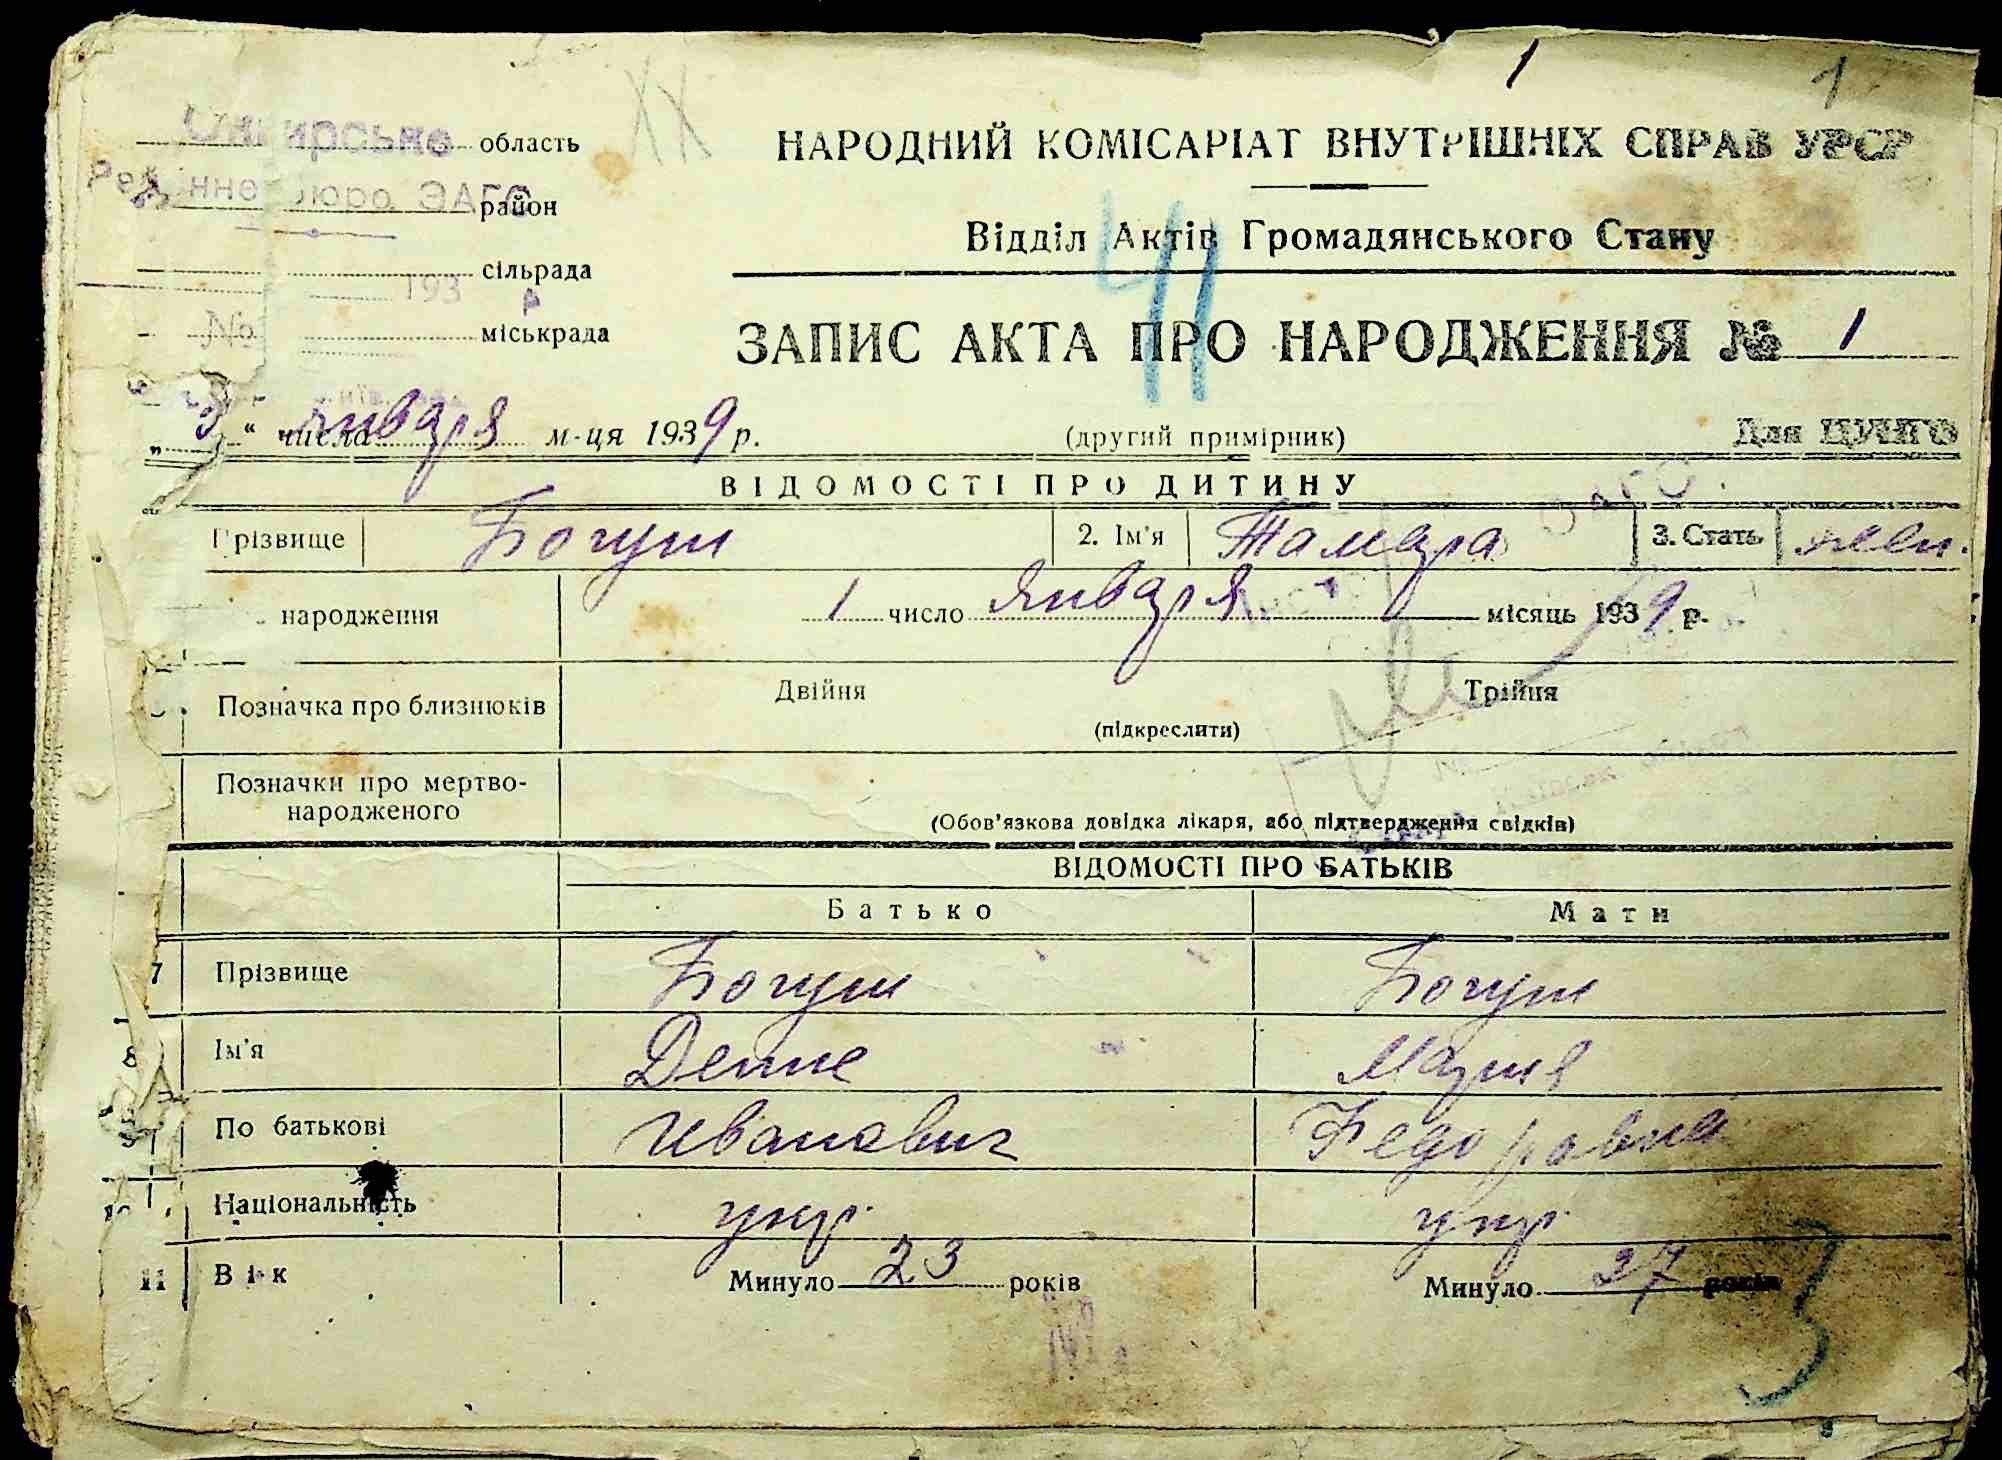 1 1
область
НАРОДНИЙ КОМІСАРІАТ ВНУТРІШНІХ СПРАВ УРСР
район
Відділ Актів Громадянського Стану
41
сільрада
193
№
міськрада
ЗАПИС АКТА ПРО НАРОДЖЕННЯ № 1
„3“ числа января м-ця 1939 р.
(другий примірник)
Для ЦУНГО
ВІДОМОСТІ ПРО ДИТИНУ
Прізвище Богуш 2. Ім'я Тамара 3. Стать жен.
народження 1 число января місяць 1939 р.
Позначка про близнюків Двійня Трійня
(підкреслити)
Позначки про мертво-
народженого
(Обов'язкова довідка лікаря, або підтвердження свідків)
ВІДОМОСТІ ПРО БАТЬКІВ
Батько Мати
7 Прізвище Богуш Богуш
8 Ім'я Мария
9 По батькові Иванович Федоровна
10 Національність укр. укр.
11 Вік Минуло 23 років Минуло років
3